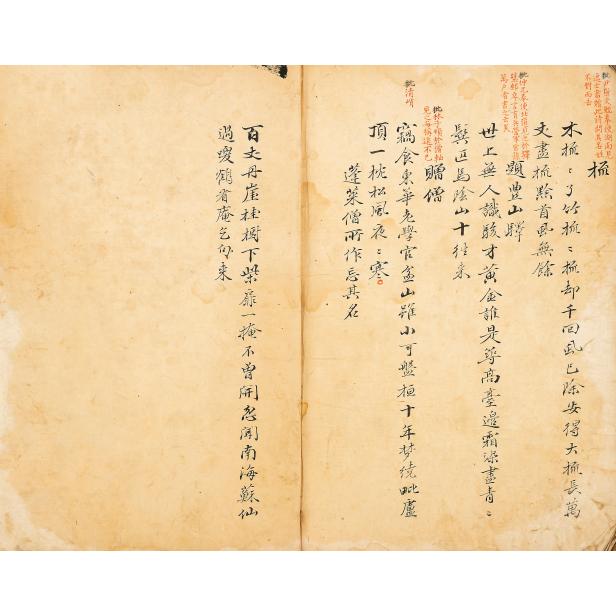 梳
木梳〻了竹梳〻梳却千回虱已除安得大梳長萬
丈盡梳黔首虱無餘
題豐山驛
世上無人識駿才黃金誰是築高臺邊霜染盡青〻
鬢匹馬陰山十往來
批清峭
贈僧
批林子順於僧軸
見之每稱道不已
竊食東華老學官盆山雖小可盤桓十年夢繞毗盧
頂一枕松風夜〻寒
蓬萊僧所作忘其名
百丈丹崖桂樹下柴扉一掩不曾開忽聞南海蘇仙
過喚鶴看庵乞句來